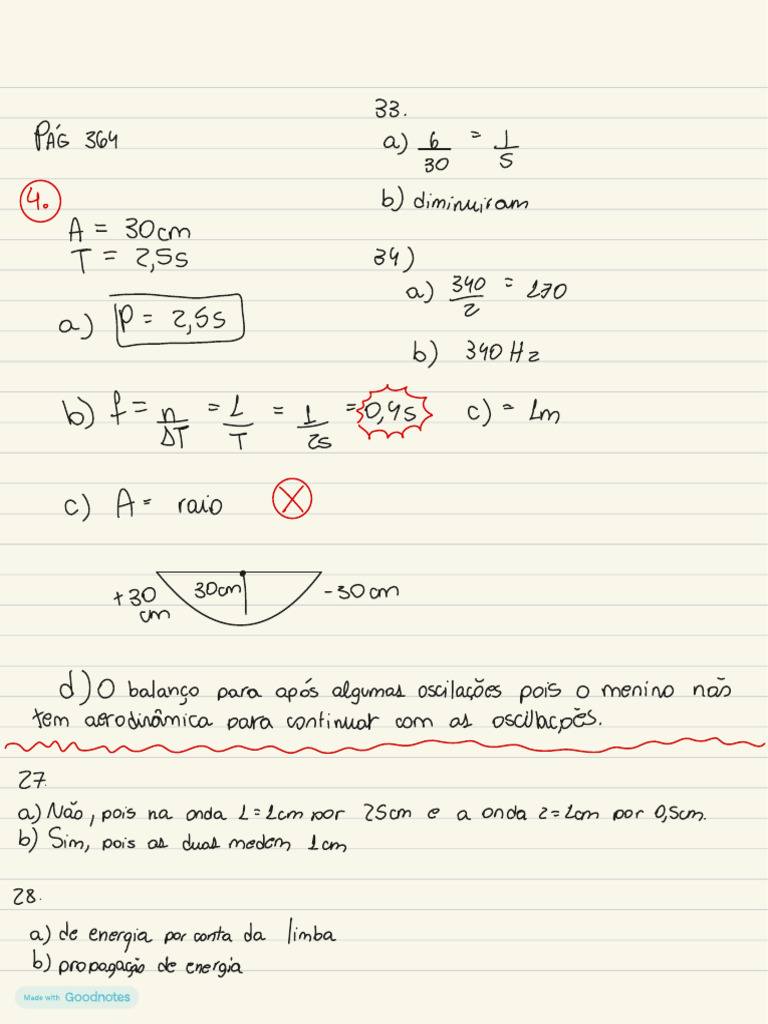 PÁG 364
4.
A = 30cm
T = 2,5s
a) P = 2,5s
b) f = n/ΔT = 1/T = 1/2s = 0,4s
c) A = raio
+30 cm 30cm -30cm
d) O balanço para após algumas oscilações pois o menino não
tem aerodinâmica para continuar com as oscilacpões.
33.
a) 6/30 = 1/5
b) diminuiram
34)
a) 340/2 = 170
b) 340 Hz
c) = 1m
27.
a) Não, pois na onda 1 = 1cm por 25cm e a onda 2 = 1cm por 0,5cm.
b) Sim, pois as duas medem 1cm
28.
a) de energia por conta da limba
b) propagação de energia
Made with Goodnotes